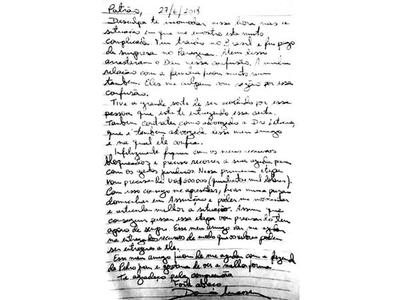 Patrão, 27/6/2018
Desculpa te incomodar essa hora mas a
situação em que me encontro está muito
complicada. Fui traído no Brasil e fui pego
de surpresa no Paraguai. Além disso
arrastaram o Dan nessa confusão. A minha
relação com a família ficou muito ruim
também. Eles me culpam com razão por essa
confusão.
Tive a grande sorte de ser acolhido por essa
pessoa que está te entregando essa carta.
Também contratei como advogada a Dra Letícia,
que é também advogada desse meu amigo
e na qual ele confia.
Infelizmente fiquei com os meus recursos
bloqueados e preciso recorrer a sua ajuda para
com os gastos jurídicos. Nessa primeira etapa
vou precisar de US 500.000 (quinhentos mil dólares).
Com isso consigo me apresentar, ficar numa prisão
domiciliar em Assunção e poder me movimentar
e articular melhor a situação. Assim que
conseguir passar essa etapa vou precisar de teu
apoio de sempre. Esse meu amigo vai me ajudar
na entrega dos recursos de modo que os valores podem
ser entregues a ele.
Esse meu amigo ficou de me ajudar com a fazenda
de Pedro Juan e gostaria de ver a melhor forma.
Te agradeço pela compreensão
Forte abraço